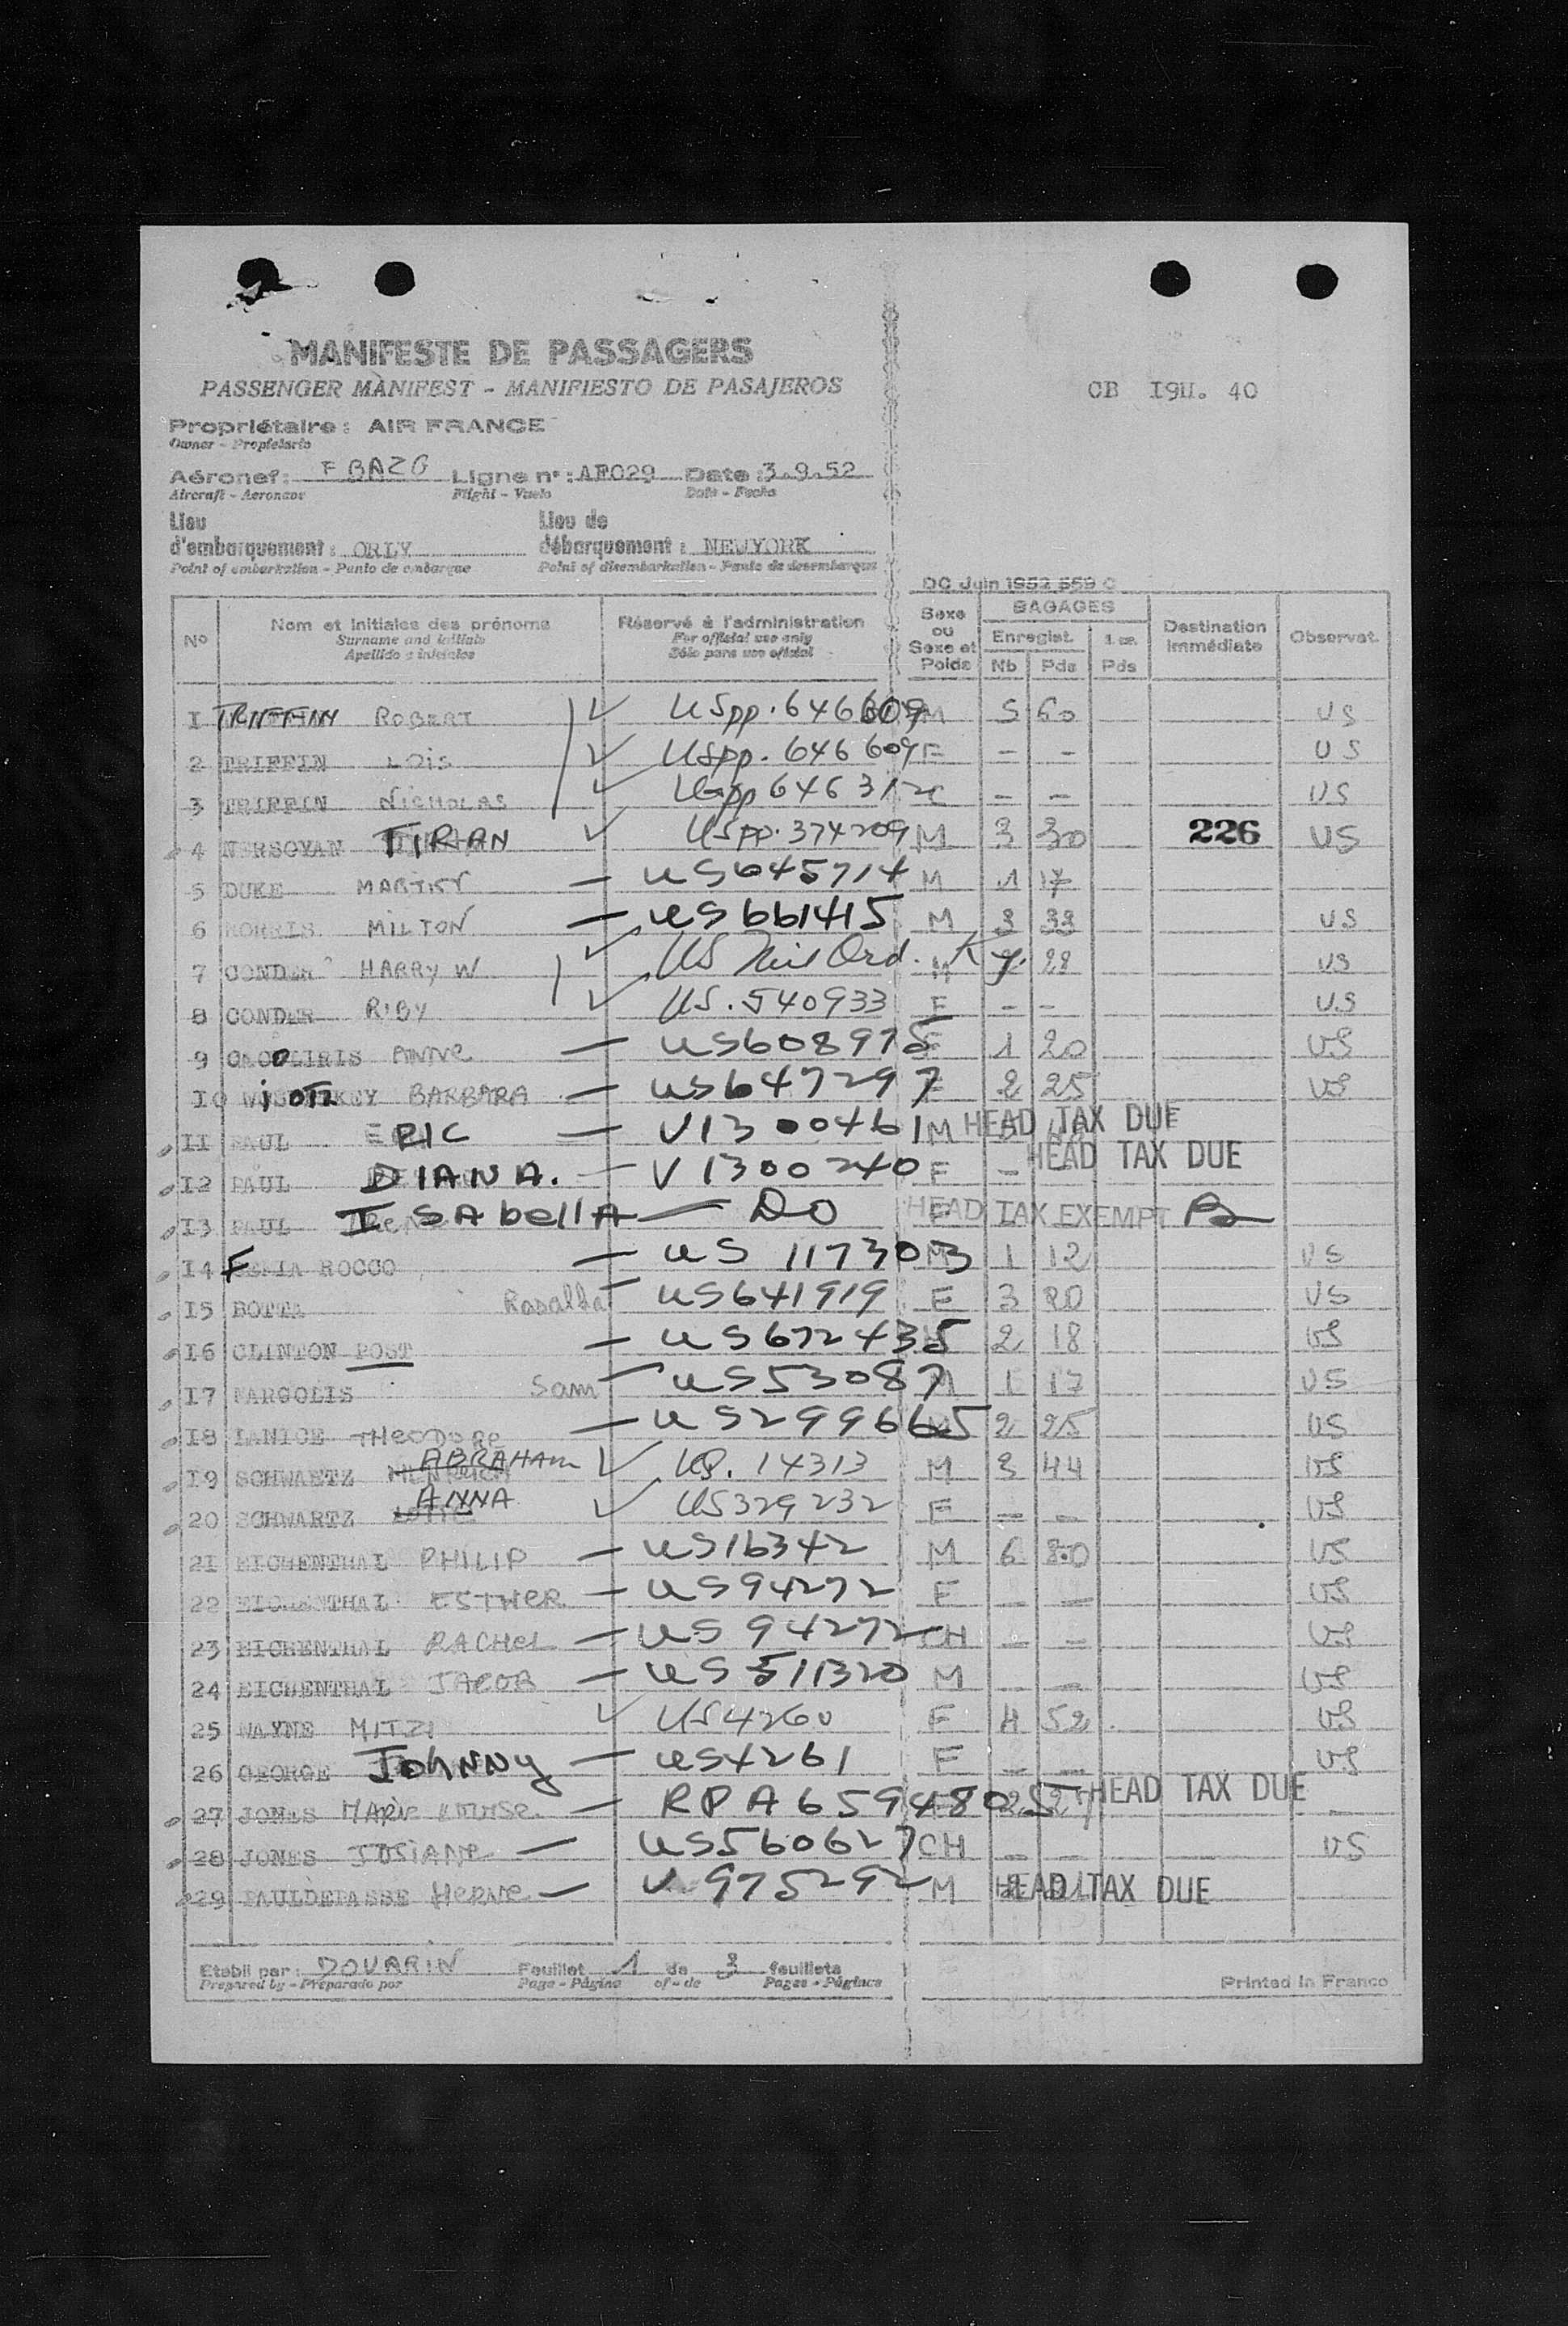 MANIFESTE DE PASSAGERS
PASSENGER MANIFEST - MANIFIESTO DE PASAJEROS
CB I9H. 40
Propriétaire : AIR FRANCE
Owner - Propietario
Aéronef : F BAZG Ligne n° : AF029 Date : 3.9.52
Aircraft - Aeronave Flight - Vuelo Date - Fecha
Lieu d'embarquement : ORLY Lieu de débarquement : NEWYORK
Point of embarkation - Punto de embarque Point of disembarkation - Punto de desembarque
DC Juin 1952 559 C
N° Nom et initiales des prénoms Réservé à l'administration Sexe ou Sexe et Poids BAGAGES Destination immédiate Observat.
Surname and initials For official use only Enregist.
Apellido e iniciales Sólo para uso oficial Nb Pds Pds
1 TRIFFIN ROBERT US pp. 646609 M 5 60 US
2 TRIFFIN LOIS US pp. 646609 F - - US
3 TRIFFIN NICHOLAS US pp 646312 C - - US
4 NERSOYAN TIRAN US pp. 374209 M 3 30 226 US
5 DUKE US645714 M 1 17
6 MORRIS MILTON US661415 M 3 33 US
7 CONDER HARRY W US Ord. M 28 US
8 CONDER RIBY US. 540933 F - - US
9 ANNE US608975 F 1 20 US
10 BARBARA US647297 F 2 25 US
11 PAUL ERIC V1300461 M HEAD TAX DUE
12 PAUL DIANA. V1300240 F - HEAD TAX DUE
13 PAUL ISABELLA DO HEAD TAX EXEMPT
14 FEMIA ROCCO US 117303 M 1 12 US
15 BOTTA Rosalba US641919 F 3 20 US
16 CLINTON POST US672435 2 18 US
17 MARGOLIS Sam US53087 M 1 17 US
18 IANICE THEODORE US299665 2 25 US
19 SCHWARTZ ABRAHAM US. 14313 M 3 44 US
20 SCHWARTZ ANNA US329232 F - - US
21 EICHENTHAL PHILIP US16342 M 6 80 US
22 EICHENTHAL ESTHER US94272 F - - US
23 EICHENTHAL RACHEL US 94272 CH - - US
24 EICHENTHAL JACOB US511320 M - - US
25 WAYNE MITZI US4260 F 4 52 US
26 GEORGE JOHNNY US4261 F - - US
27 JONES MARIE LOUISE RPA659480 HEAD TAX DUE
28 JONES JOSIANE US560627 CH - - US
29 PAULDEPASSE HERVE V 975292 M HEAD TAX DUE
Etabli par : DOUARIN Feuillet 1 de 3 feuillets
Prepared by - Preparado por Page - Página of - de Pages - Páginas Printed in France